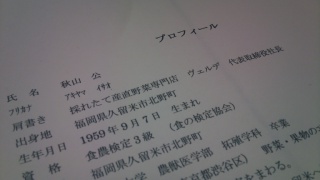 プロフィール
氏 名 秋山 公
フリガナ アキヤマ イサオ
肩書き 採れたて産直野菜専門店 ヴェルデ 代表取締役社長
出身地 福岡県久留米市北野町
生年月日 1959年9月7日 生まれ
資 格 食農検定3級 (食の検定協会)
福岡県久留米市北野町
大学 農獣医学部 拓殖学科 卒業
京都渋谷区) 野菜・果物の
をまわる。
久留米へ